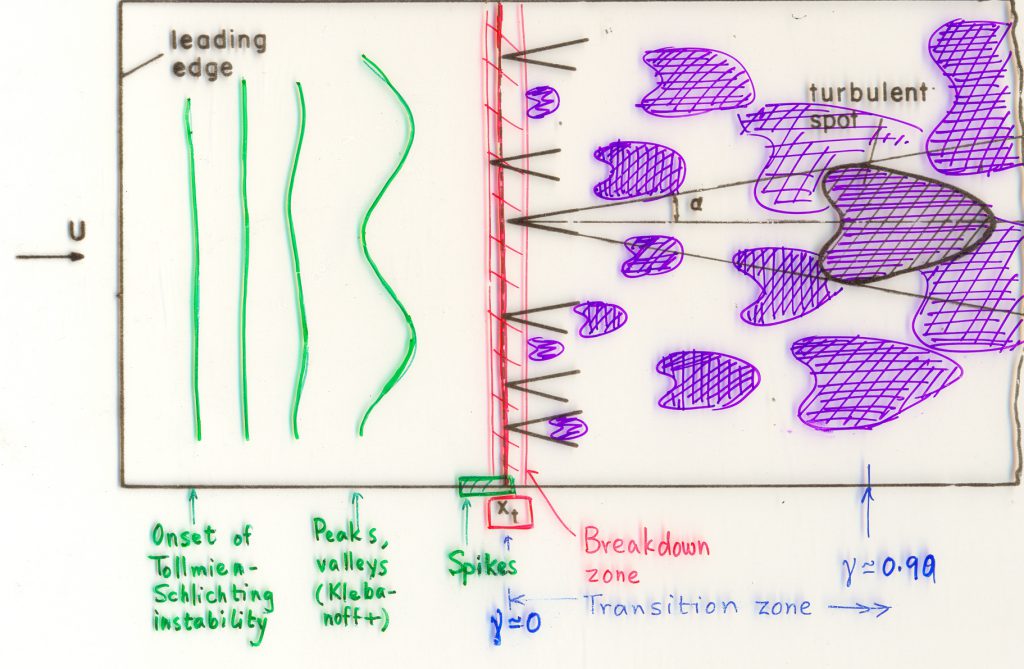 leading
edge
turbulent
spot
α
U
x_t
Onset of
Tollmien-
Schlichting
instability
Peaks,
valleys
(Kleba-
noff+)
Spikes
γ≃0
Breakdown
zone
Transition zone
γ≃0.99